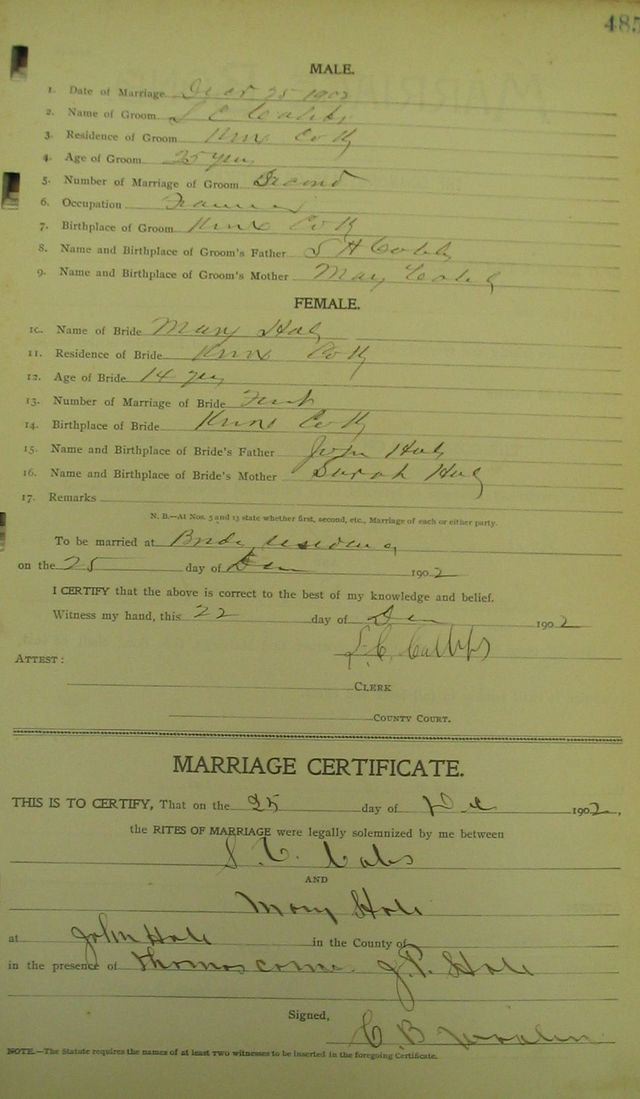 485
MALE.
1. Date of Marriage 25 1902
2. Name of Groom
3. Residence of Groom Knox Co Ky
4. Age of Groom
5. Number of Marriage of Groom Second
6. Occupation
7. Birthplace of Groom Knox Co Ky
8. Name and Birthplace of Groom's Father S H
9. Name and Birthplace of Groom's Mother
FEMALE.
10. Name of Bride Mary
11. Residence of Bride Knox Co Ky
12. Age of Bride 14
13. Number of Marriage of Bride First
14. Birthplace of Bride Knox Co Ky
15. Name and Birthplace of Bride's Father John
16. Name and Birthplace of Bride's Mother Sarah
17. Remarks
N. B.—At Nos. 5 and 13 state whether first, second, etc., Marriage of each or either party.
To be married at Bride
on the 25 day of 1902
I CERTIFY that the above is correct to the best of my knowledge and belief.
Witness my hand, this 22 day of 1902
ATTEST:
CLERK
COUNTY COURT.
MARRIAGE CERTIFICATE.
THIS IS TO CERTIFY, That on the 25 day of 1902,
the RITES OF MARRIAGE were legally solemnized by me between
AND
Mary Hole
at John Hole in the County of
in the presence of Thomas J. P. Hole
Signed,
C. B.
NOTE.—The Statute requires the names of at least two witnesses to be inserted in the foregoing Certificate.